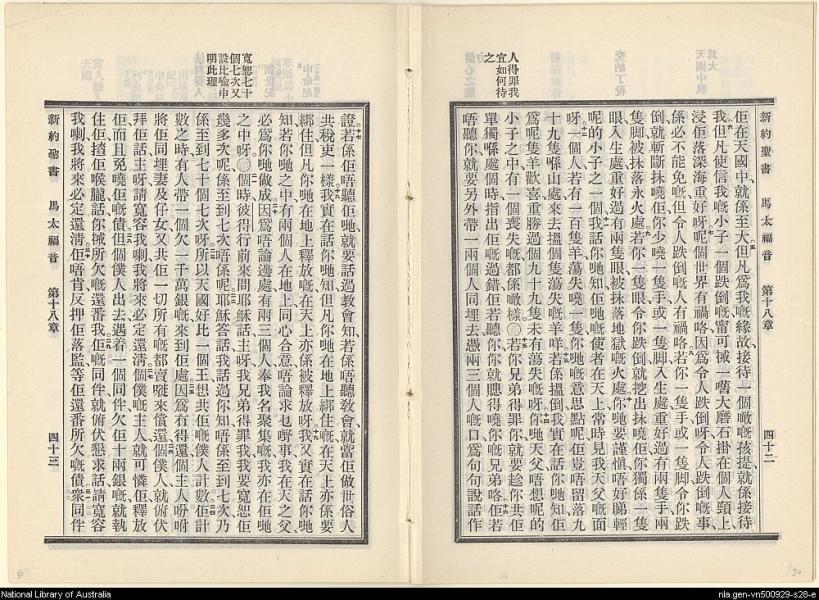 新約聖書 馬太福音 第十八章 四十二
佢在天國中、就係至大但凡爲我嘅緣故接待一個噉嘅孩提就係接待
我但凡使信我嘅小子一個跌倒嘅寗可械一嚿大磨石掛在個人頸上
浸佢落深海重好呀呢個世界有禍咯因爲令人跌倒呀令人跌倒嘅事
係必不能免嘅但令人跌倒嘅人有禍咯若你一隻手或一隻脚令你跌
倒就斬斷抹曉佢你少曉一隻手或一隻脚入生處重好過有兩隻手兩
隻脚被抹落永火處若你一隻眼令你跌倒就挖出抹曉佢你獨係一隻
眼入生處重好過有兩隻眼被抹落地獄嘅火處你哋要謹愼唔好睇輕
呢的小子之一個我話你哋知佢哋嘅使者在天上常時見我天父嘅面
呀一個人若有一百隻羊蕩失曉一隻你哋嘅意思點呢佢豈唔留落九
十九隻喺山處來去搵個隻蕩失嘅羊咩若係搵倒我實在話你哋知佢
爲呢隻羊歡喜重勝過個九十九隻未有蕩失嘅呀你哋天父唔想呢的
小子之中有一個喪失嘅都係噉樣〇若你兄弟得罪你就要趁你共佢
單獨喺處個時指出佢嘅過錯佢若聽你你就賺得曉你嘅兄弟咯佢若
唔聽你就要另外帶一兩個人同埋去憑兩三個人嘅口爲句句說話作
人得罪我
宜如何待
之
寬恕七十
個七次又
設比喻申
明此理
證若係佢唔聽佢哋就要話過敎會知若係佢唔聽敎會就當佢做世俗人
共稅吏一樣我實在話你哋知但凡你哋在地上綁住嘅在天上亦係要
綁住但凡你哋在地上釋放嘅在天上亦係被釋放呀我又實在話你哋
知若你哋之中有兩個人在地上同心合意唔論求乜嘢事我在天之父
必爲你哋做成因爲唔論邊處有兩三個人奉我名聚集嘅我亦在佢哋
之中呀〇個時彼得行前來問耶穌話主呀我兄弟得罪我我要寬恕佢
幾多次呢係至到七次唔係呢耶穌答話我話過你知唔係至到七次乃
係至到七十個七次呀所以天國好比一個王想共佢嘅僕人計數佢計
數之時有人帶一個欠一千萬銀嘅來到佢處因爲冇得還個主人吩咐
將佢同埋妻及仔女又共佢一切所有嘅都賣嘥來償還個僕人就俯伏
拜佢話主呀請寬容我喇我將來必定還淸個僕嘅主人就可憐佢釋放
佢而且免曉佢嘅債但個僕人出去遇着一個同伴欠佢十兩銀嘅就執
住佢揸佢喉嚨話你械所欠嘅還番我佢嘅同伴就俯伏懇求話請寬容
我喇我將來必定還淸佢唔肯反押佢落監等佢還番所欠嘅債衆同伴
新約聖書 馬太福音 第十八章 四十三
National Library of Australia
nla.gen-vn500929-s28-e